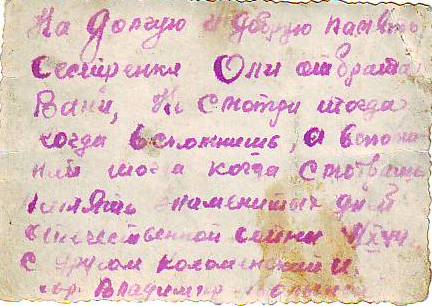 На Долгую и Добрую память
Сестренки Оли от брата
Вани, Не смотри тогда
когда вспомниш, а вспом
ни тогда когда смотриш
память знаменитых дней
отечественной войны
с другом коломенский И.
гор Владимир